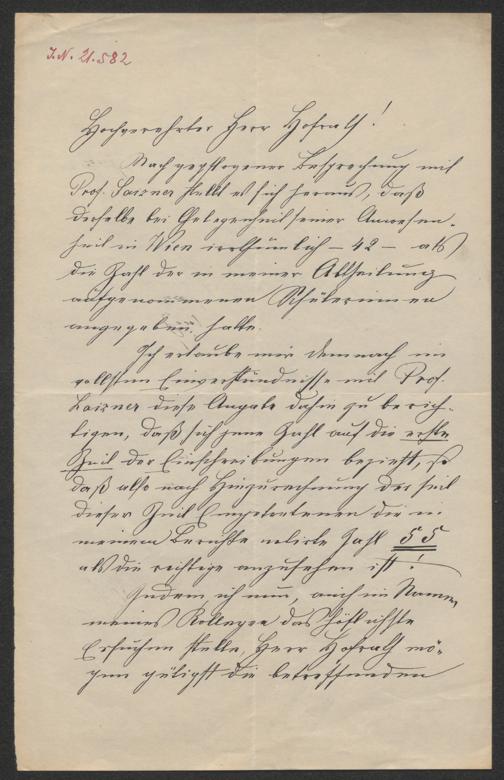 I.N. 21.582
Hochgeehrter Herr Hofrath!
Nach gepflogener Besprechung mit
Prof. Loisner stellt es sich heraus, daß
derselbe bei Gelegenheit seiner Anwesen-
heit in Wien irrthümlich – 42 – als
die Zahl der in meiner Abtheilung
aufgenommenen Schülerinnen
angegeben hatte.
Ich erlaube mir demnach im
vollsten Einverständnisse mit Prof.
Loisner diese Angabe dahin zu berich-
tigen, daß sich jene Zahl auf die erste
Zeit der Einschreibungen bezieht, so
daß also nach Hinzurechnung der seit
dieser Zeit Eingetretenen die in
meinem Berichte Zahl 55
als die richtige anzusehen ist!
Indem ich nun, auch im Namen
meines Kollegen das höflichste
Ersuchen stelle, Herr Hofrath mö-
gen gütigst die betreffenden